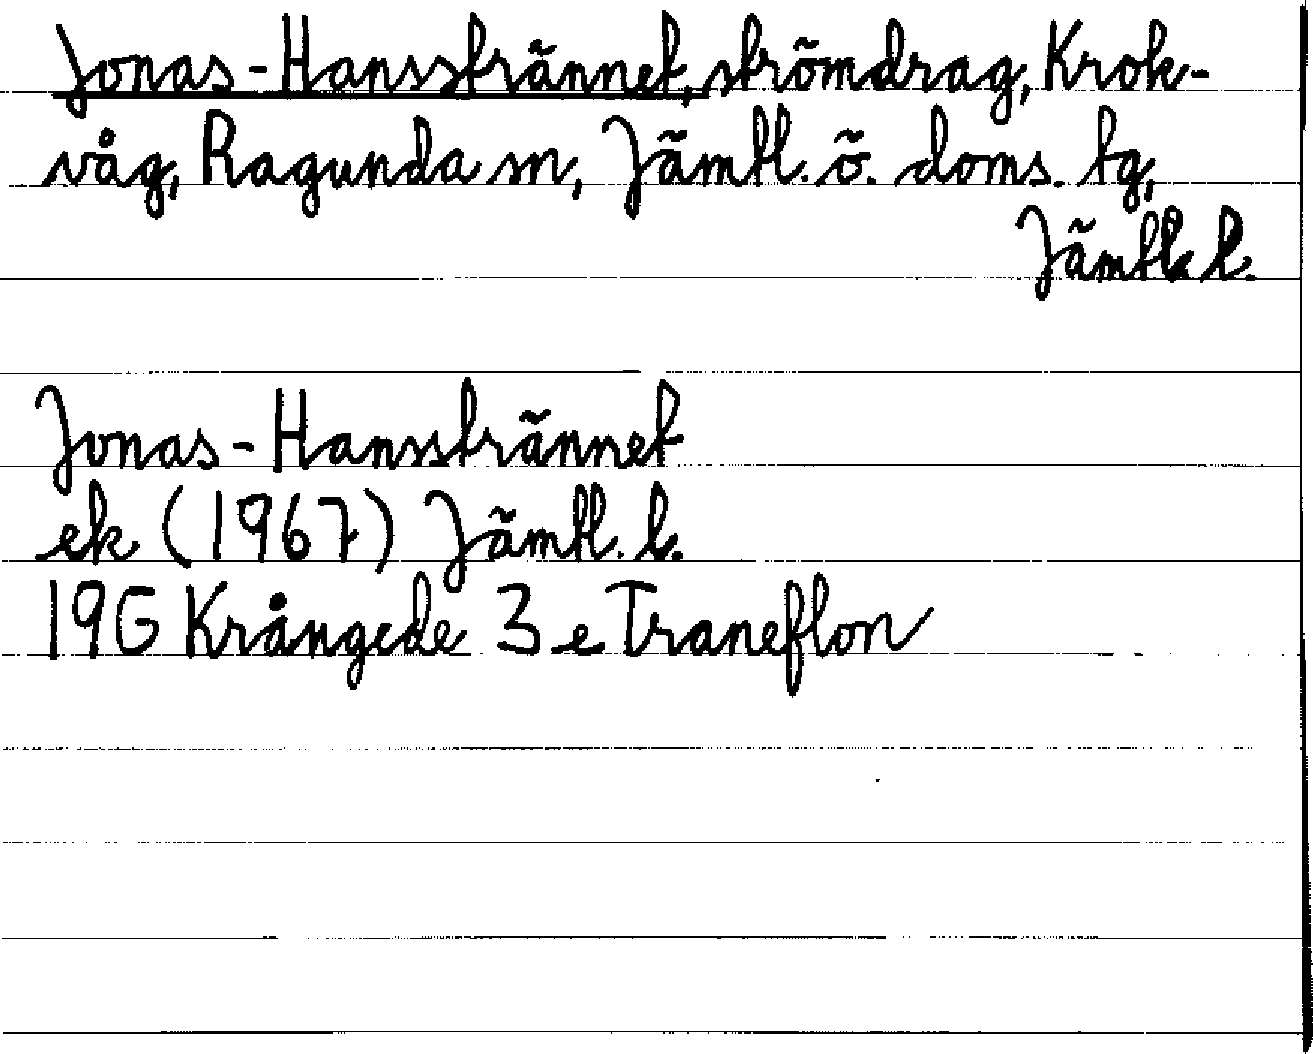 Jonas-Hansstrännet, strömdrag, Krok-
våg, Ragunda sn, Jämtl. ö. doms. tg,
Jämtl. l.
Jonas-Hansstrännet
ek (1967) Jämtl. l.
19G Krångede 3e Traneflon